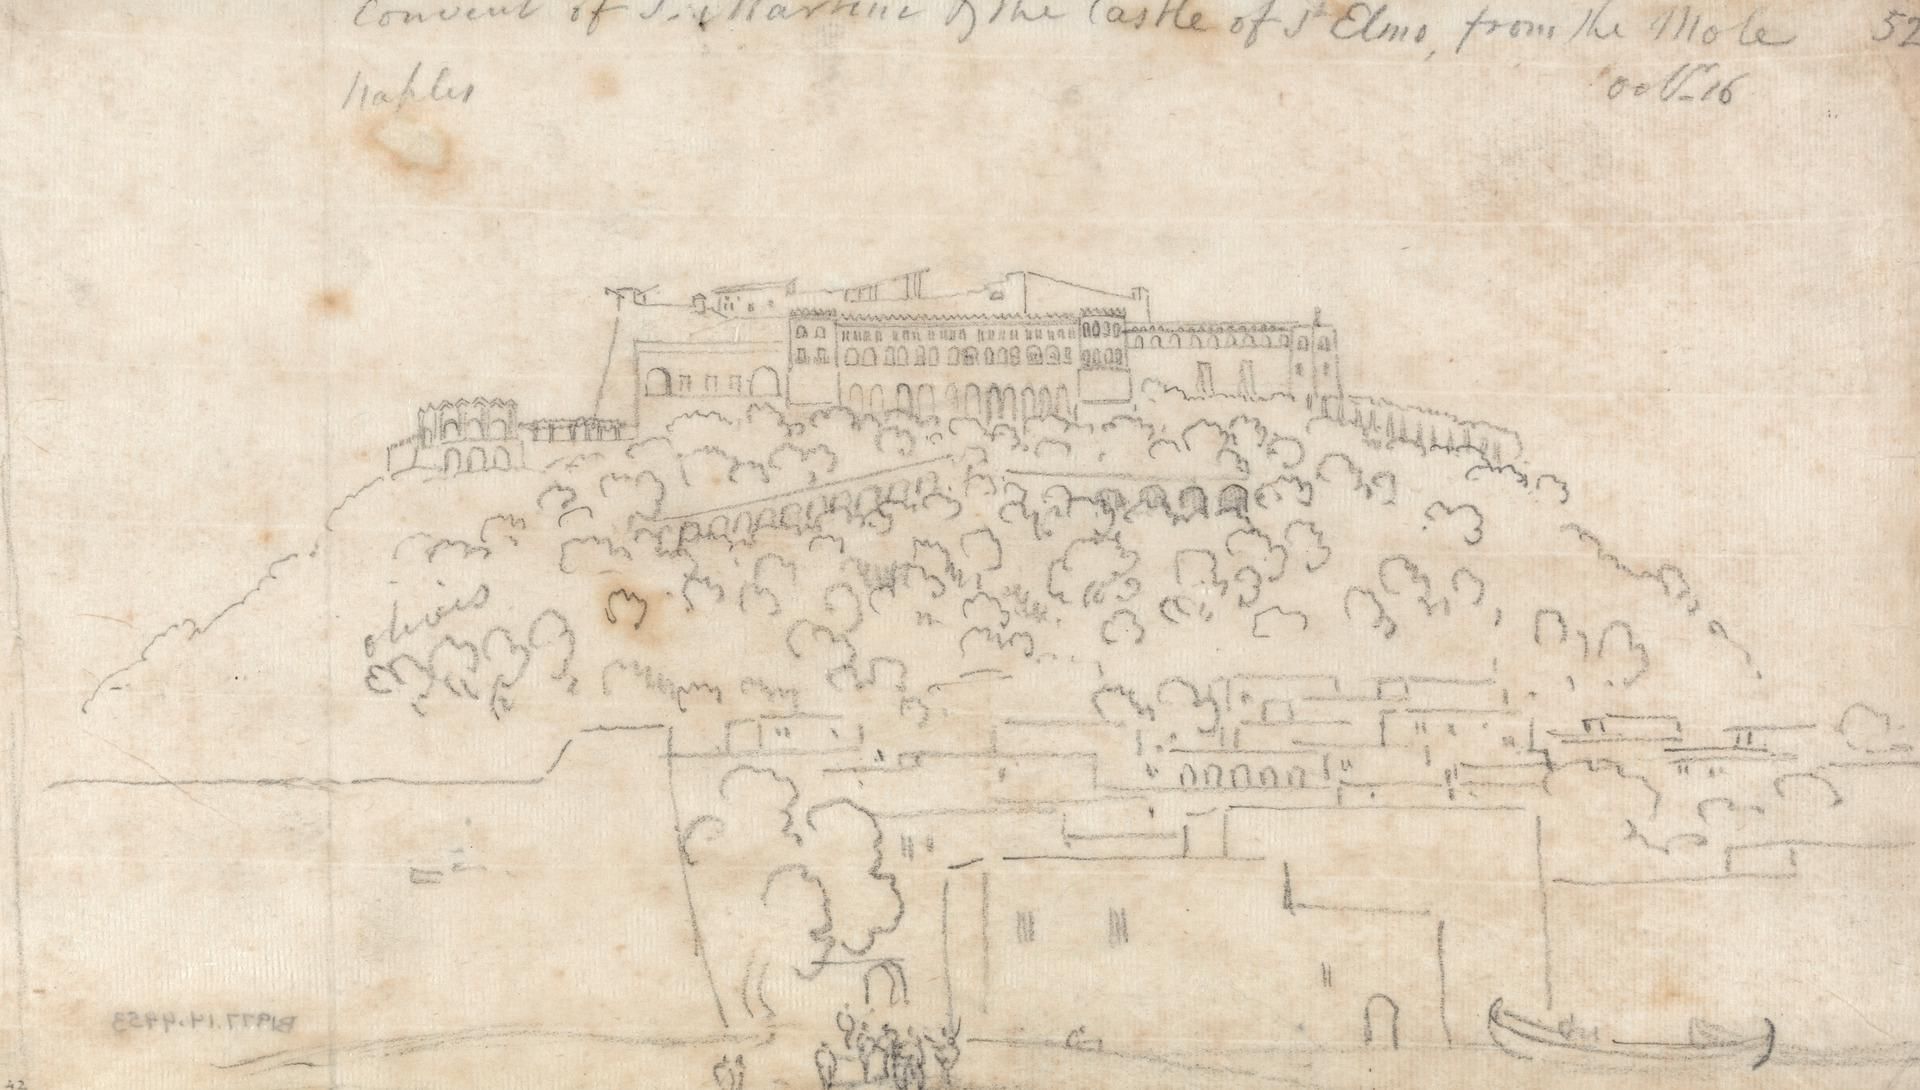 Convent of S. Martini & the Castle of St Elmo, from the Mole 52
Naples
olives
B1977.14.4453
42